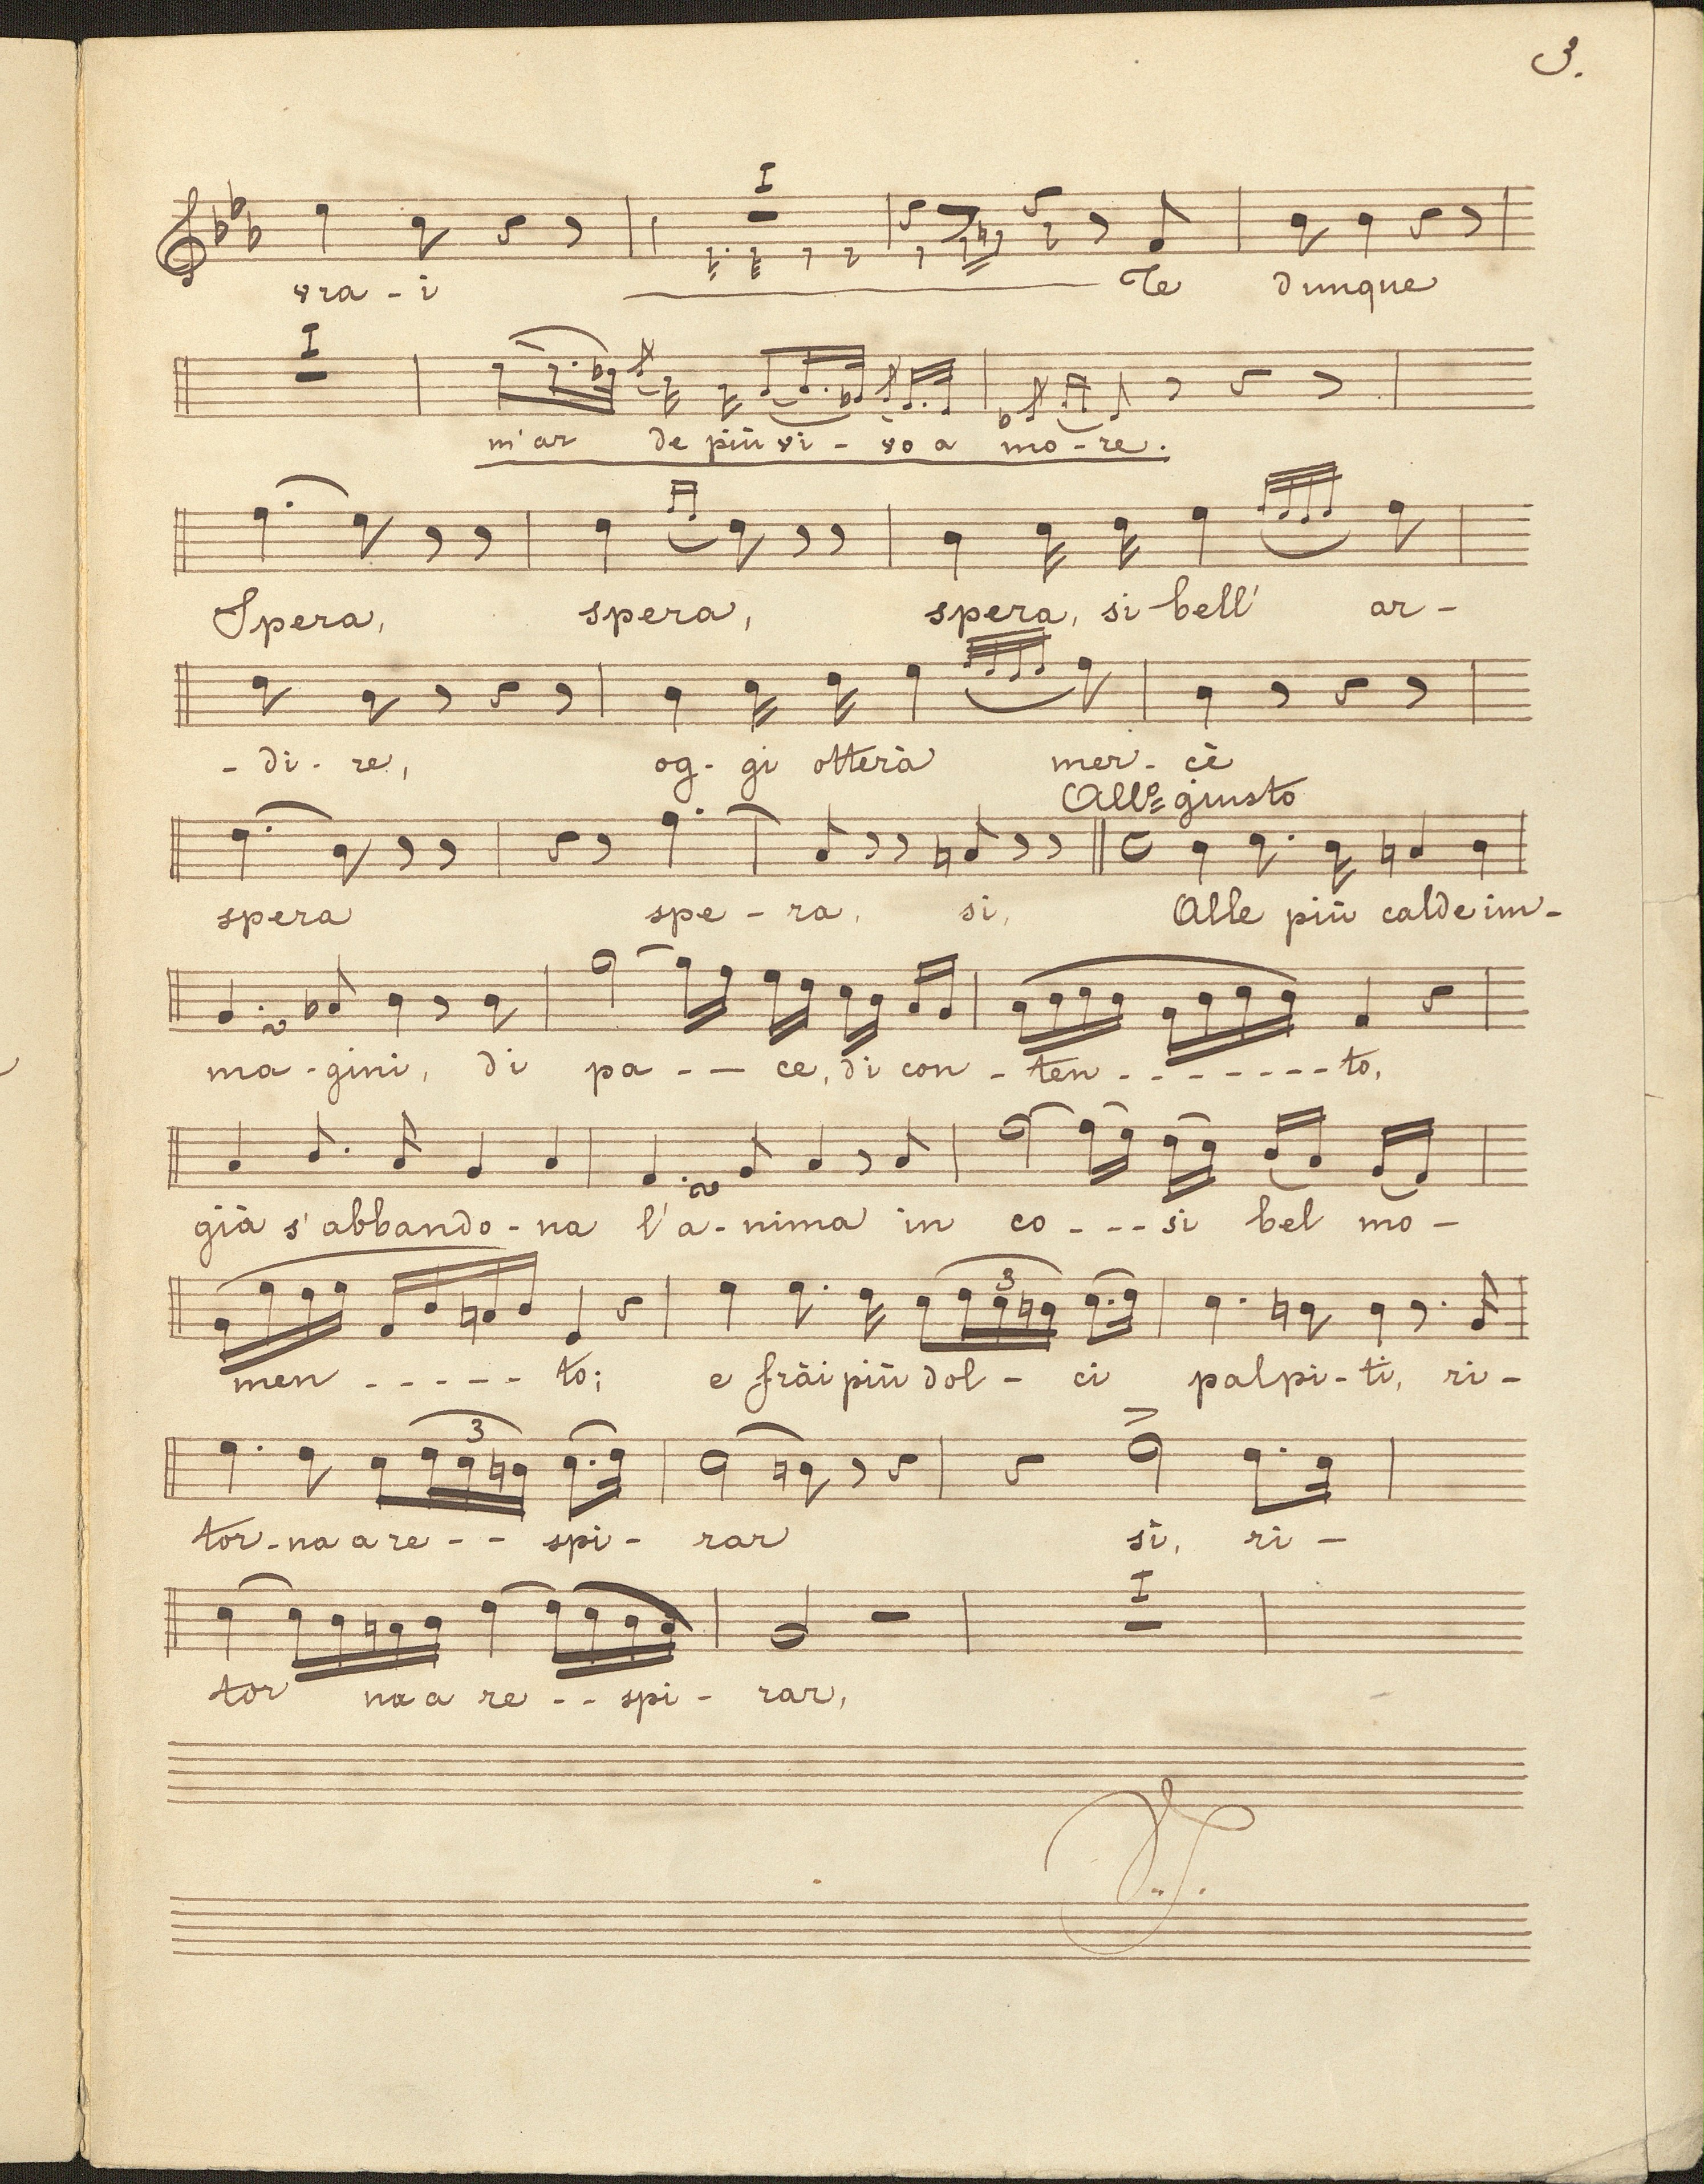 3.
I
vra - i Te dunque
I
m'ar de più vi - vo a mo - re.
Spera, spera, spera, si bell' ar -
- di - re, og - gi otterà mer - cè
All.º giusto
spera spe - ra, si, Alle più calde im -
ma - gini, di pa - - - ce, di con - ten - - - - - - - - to,
già s'abbando - na l'a - nima in co - - - si bel mo -
3
men - - - - - to; e frài più dol - ci palpi - ti, ri -
3
tor - na a re - - - spi - rar sì, ri -
I
tor na a re - - spi - rar,